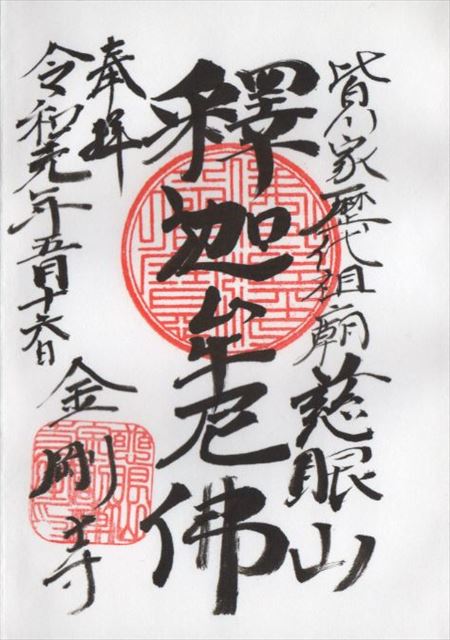 皆川家歴代祖廟 慈眼山
釋迦牟尼佛
奉拝
令和元年五月十六日
金剛寺